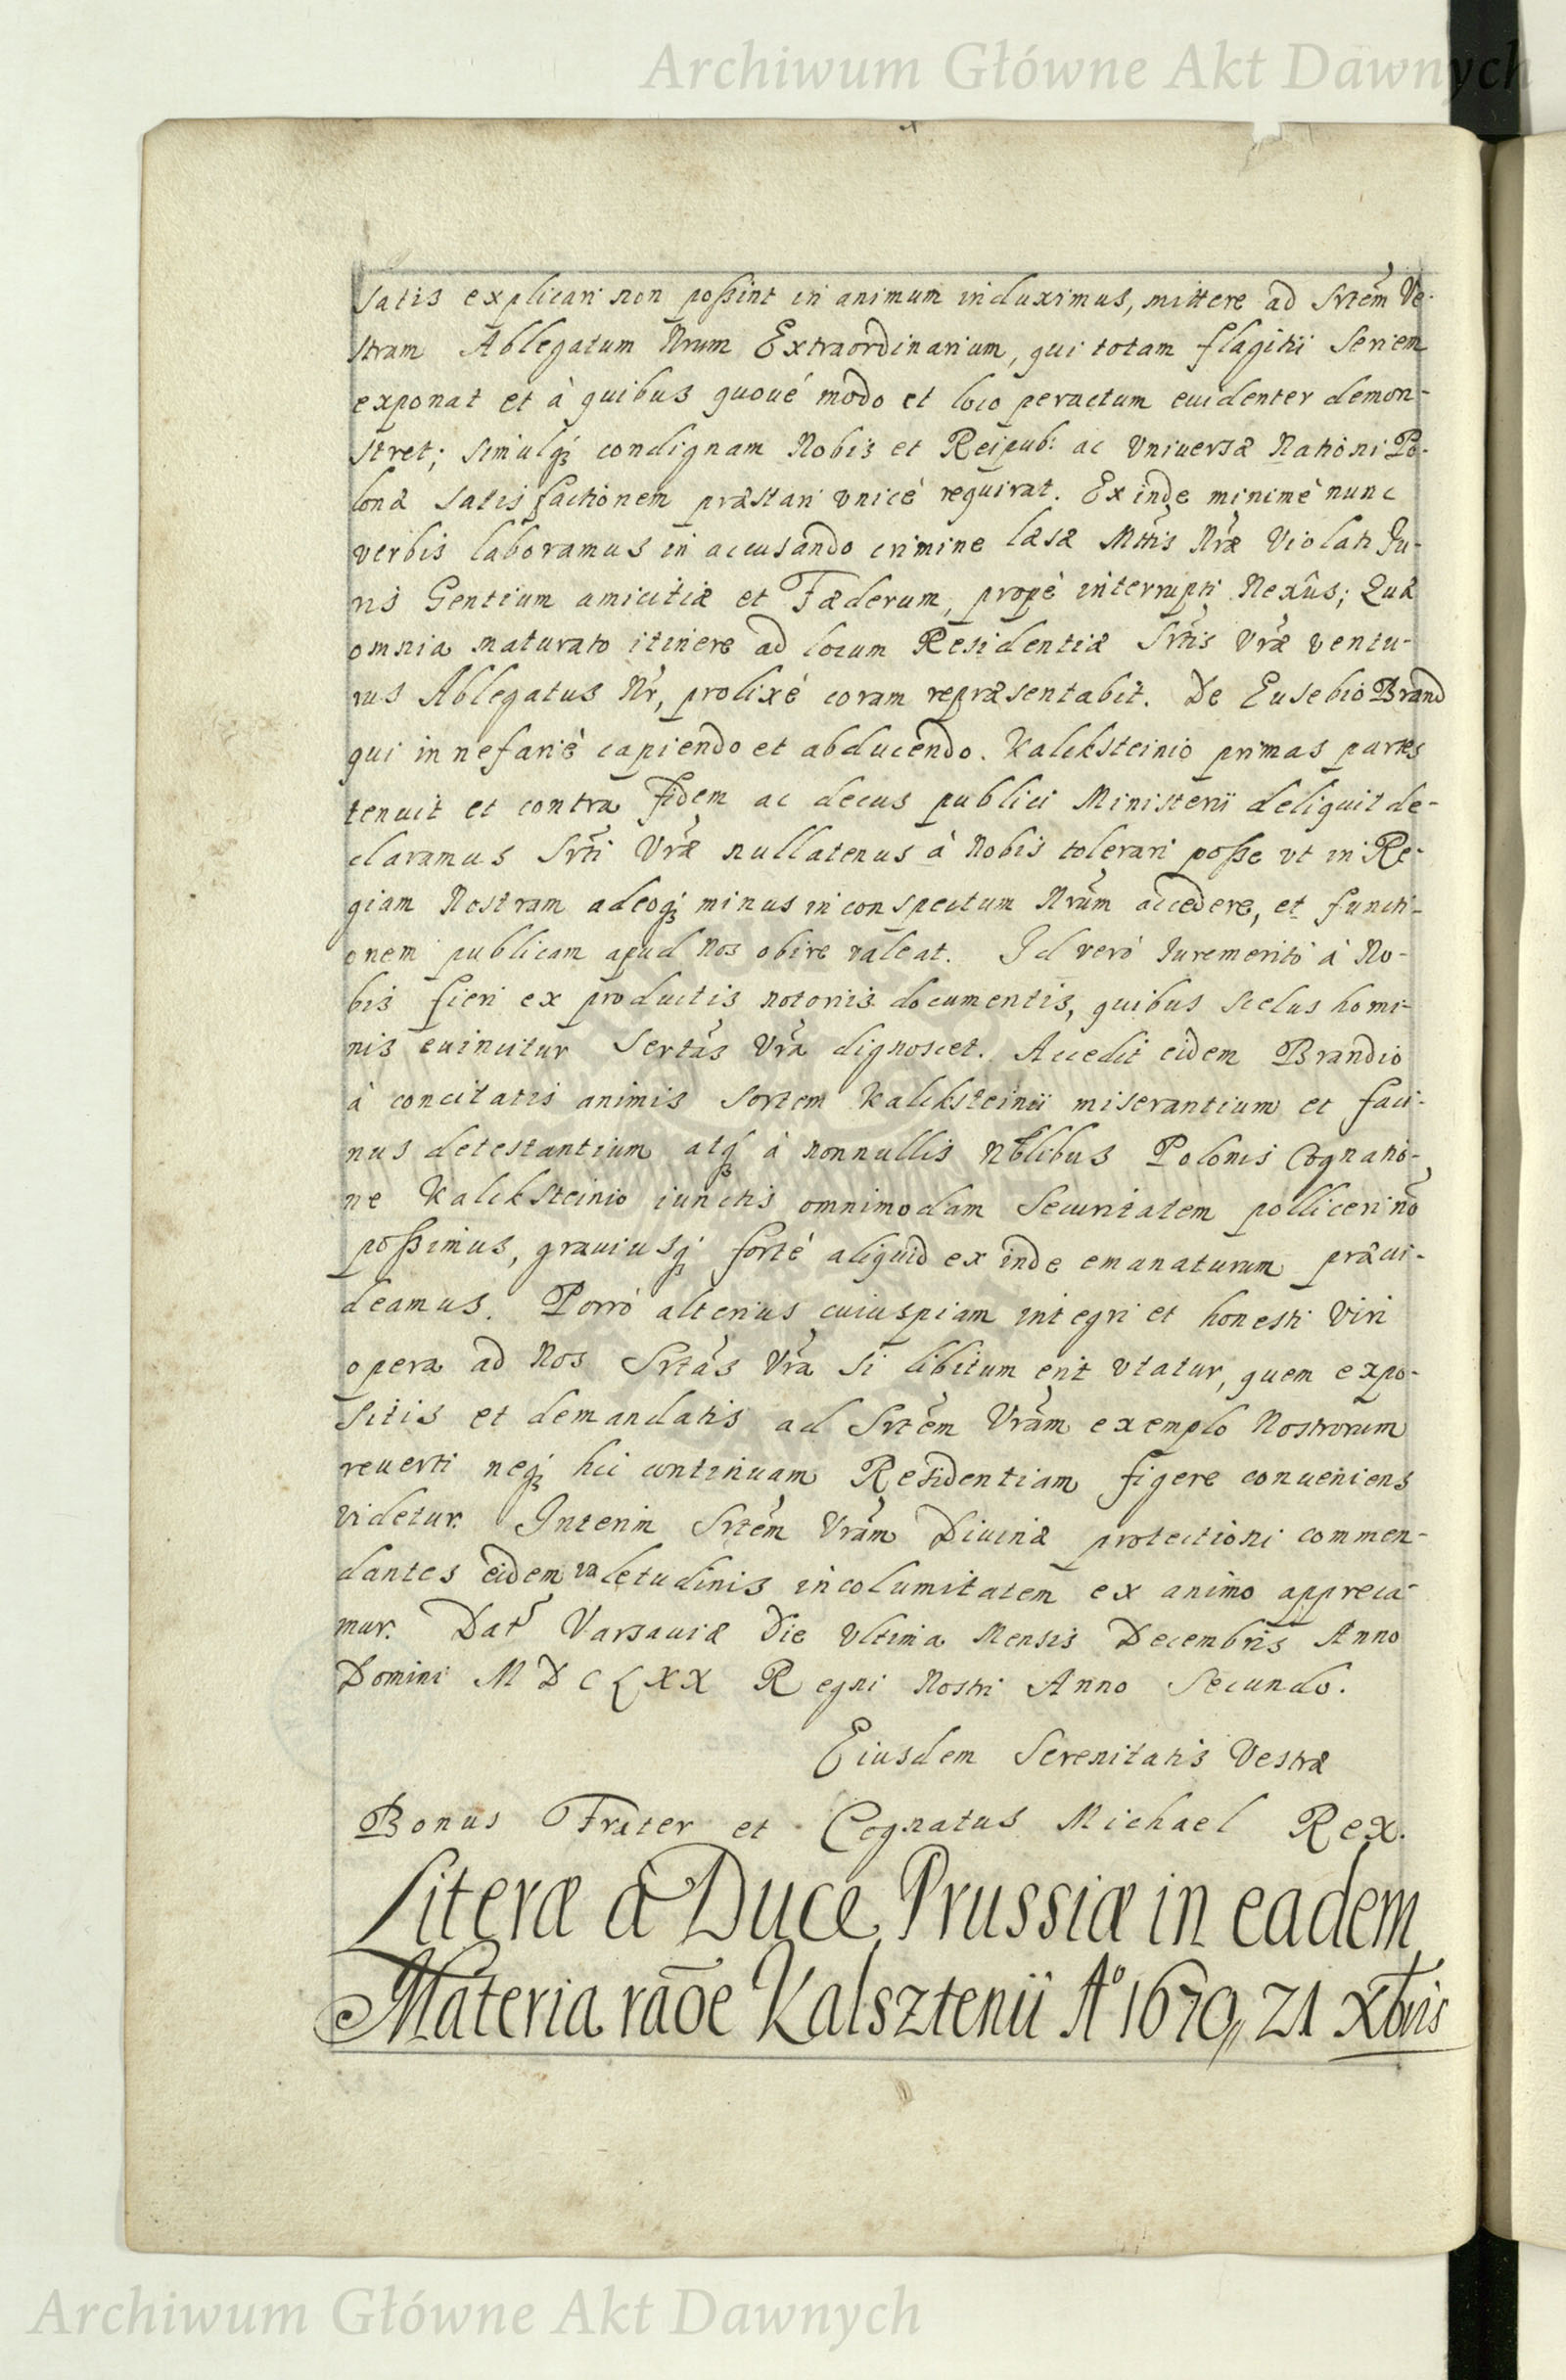 Archiwum Główne Akt Dawnych
satis explicari non poßint in animum induximus, mittere ad Srtem Ve-
stram Ablegatum Nrum Extraordinarium, qui totam flagitii seriem
exponat et à quibus quoué modo et loco peractum euidenter demon-
stret; simulq; condignam Nobis et Reipub: ac Vniuersæ Nationi Po-
lonæ satisfactionem præstari vnicè requirat. Exinde minimè nunc
verbis laboramus in accusando crimine læsæ Mttis Nræ Violati Ju-
ris Gentium amicitiæ et Fæderum, propè interrupti Nexûs; Quæ
omnia maturato itinere ad locum Residentiæ Srtis Vræ ventu-
rus Ablegatus Nr, prolixè coram repræsentabit. De Eusebio Brand
qui in nefariè capiendo et abducendo. Kalcksteinio primas partes
tenuit et contra fidem ac decus publici Ministerii deliquit de-
claramus Srti Vræ nullatenus à Nobis tolerari poße vt in Re-
giam Nostram adeoq; minus in conspectum Nrum accedere, et functi-
onem publicam apud Nos obire valeat. Id verò Iuremeritò à No-
bis fieri ex productis notoriis documentis, quibus scelus homi-
nis euincitur Sertas Vra dignoscet. Accedit eidem Brandio
à concitatis animis sortem Kalcksteinii miserantium et faci-
nus detestantium atq; à nonnullis Nblibus Polonis Cognatio-
ne Kalcksteinio iunctis omnimodam securitatem polliceri nõ
poßimus, grauiusq; fortè aliquid ex inde emanaturum præui-
deamus. Porrò alterius cuiuspiam integri et honesti Viri
opera ad Nos Srtas Vra si libitum erit vtatur, quem expo-
sitis et demandatis ad Srtem Vram exemplo Nostrorum
reuerti neq; hic continuam Residentiam figere conueniens
videtur. Interim Srtem Vram Diuinæ protectioni commen-
dantes eidem valetudinis incolumitatem ex animo appreca-
mur. Dat Varsauiæ Die Vltima Mensis Decembris Anno
Domini MDCLXX Regni Nostri Anno Secundo.
Eiusdem Serenitatis Vestræ
Bonus Frater et Cognatus Michael Rex.
Literæ à Duce Prussiæ in eadem
Materia raõe Kalsztenii Aº 1670,, 21 Xbris
Archiwum Główne Akt Dawnych